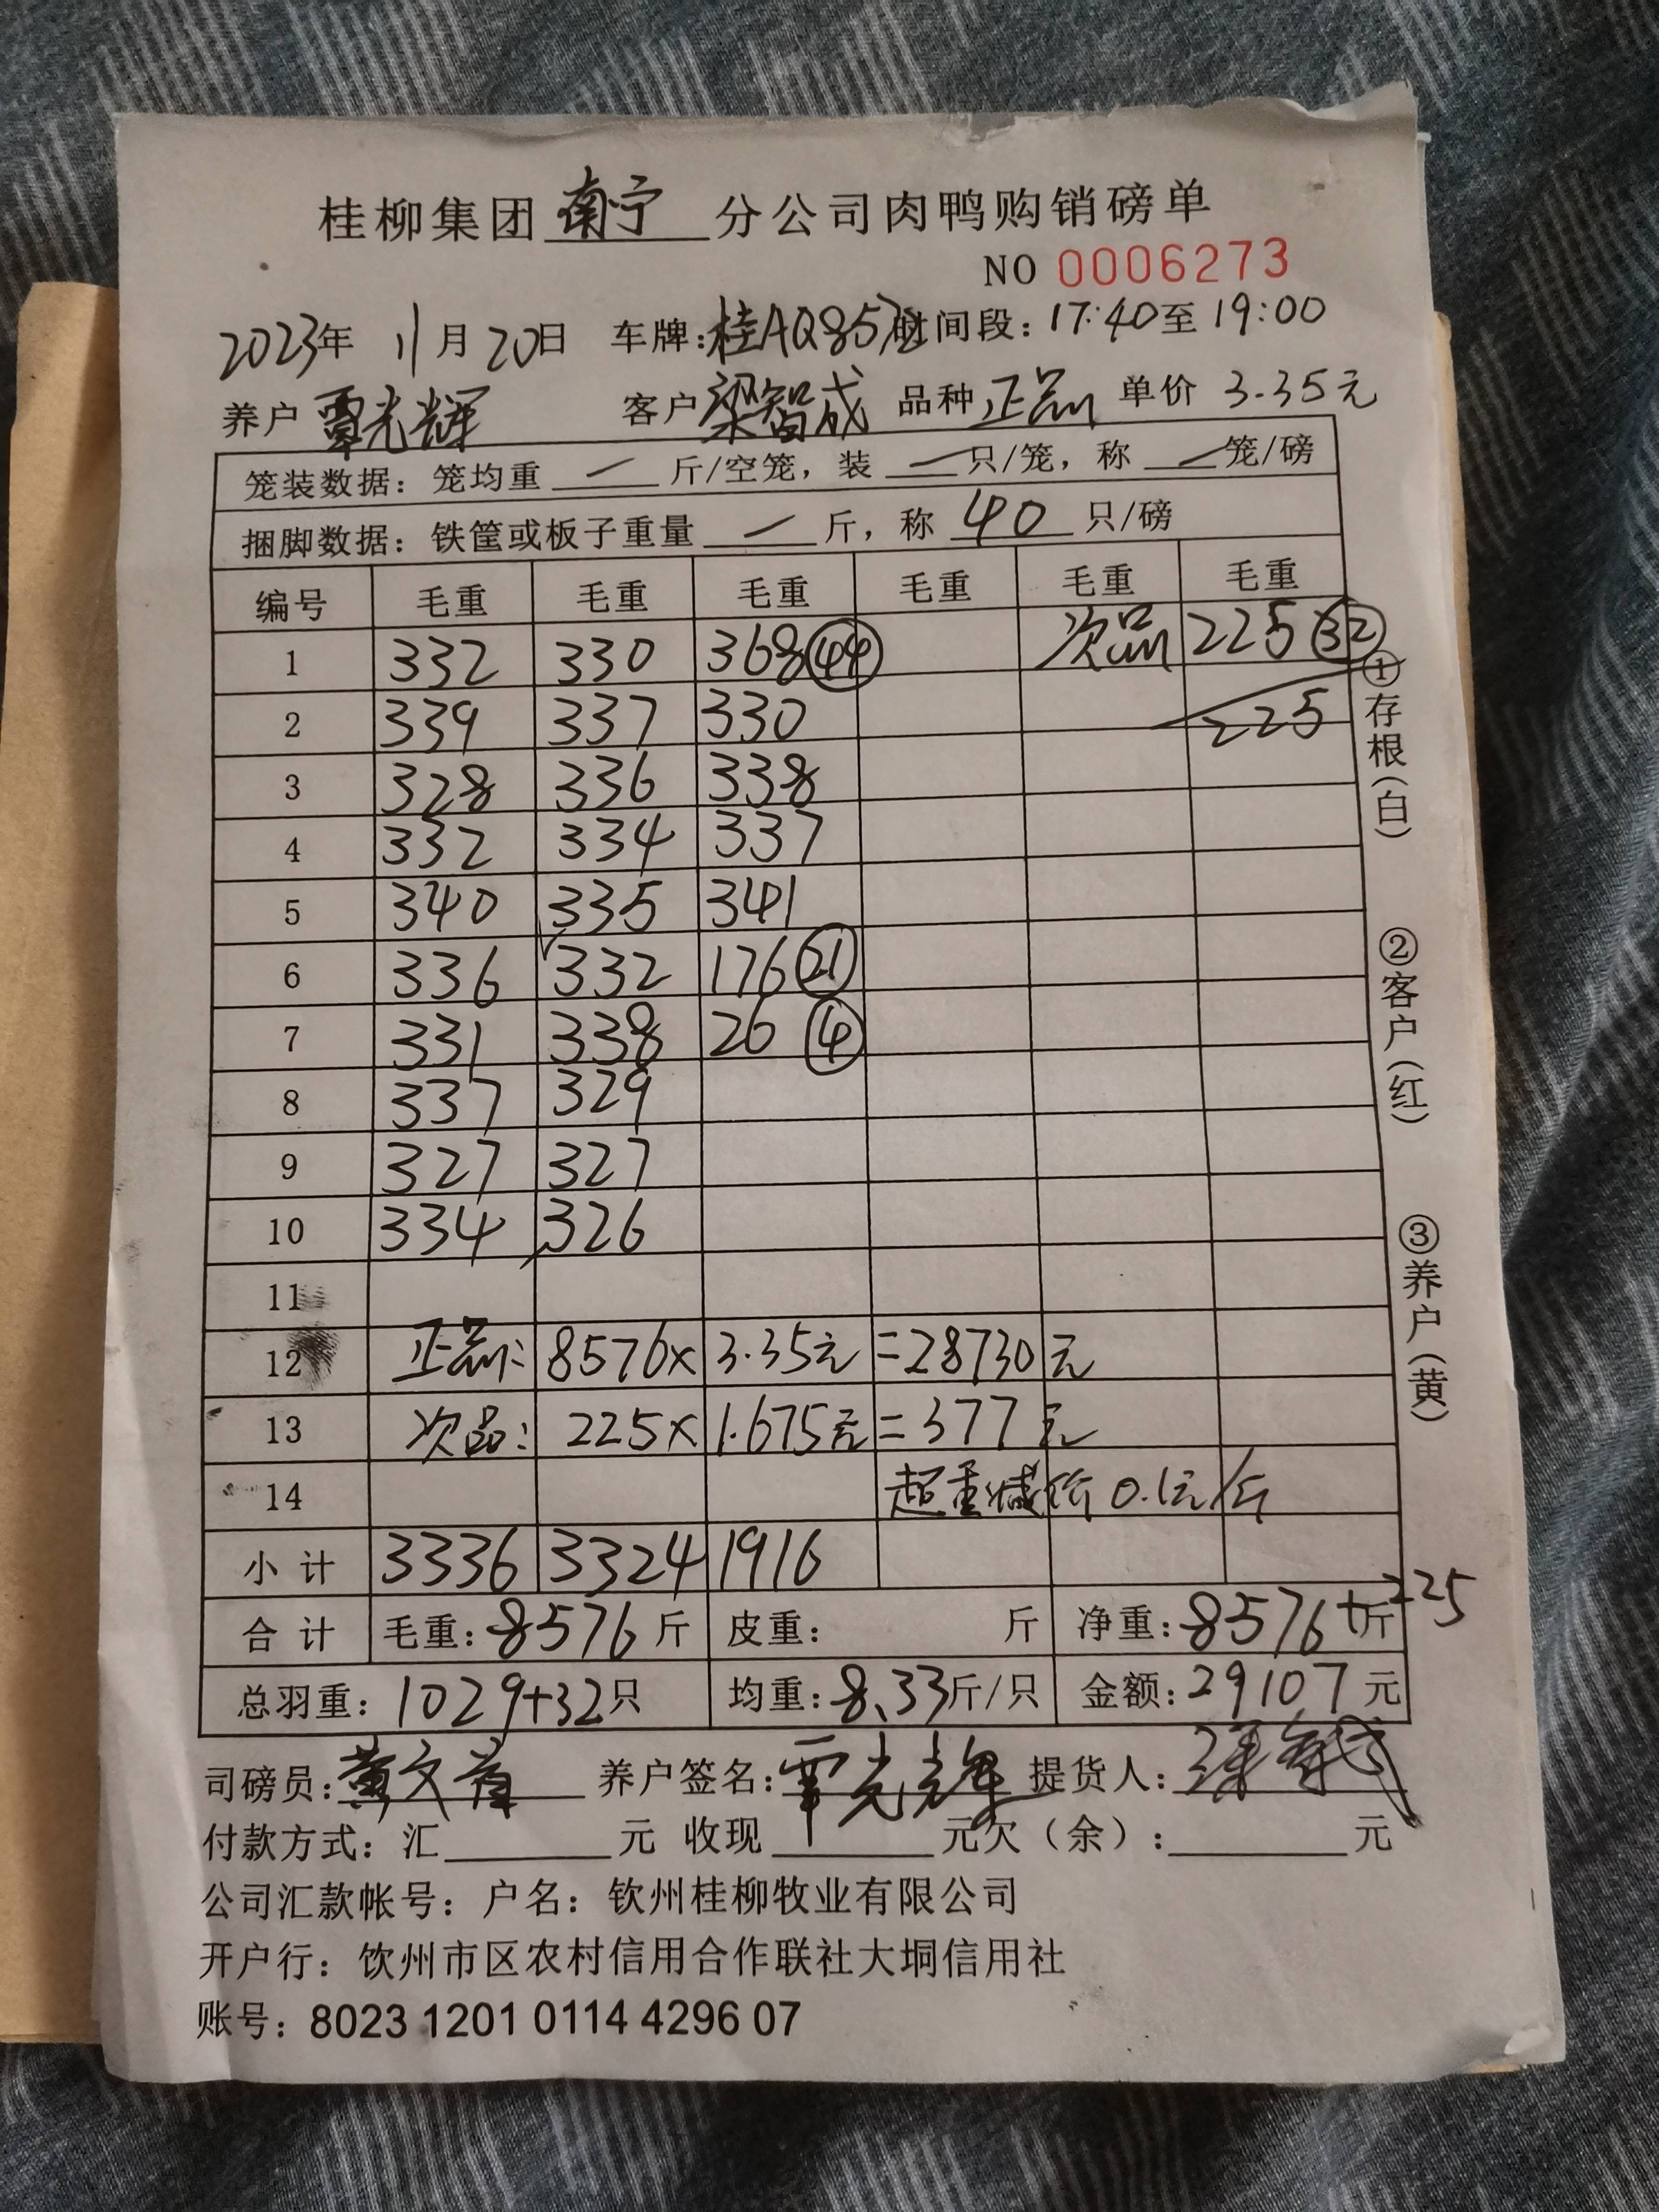 桂柳集团南宁分公司肉鸭购销磅单
NO 0006273
2023年 11月20日 车牌:桂AQ857 时间段:17:40至19:00
养户 覃光辉 客户 梁智成 品种 正品 单价 3.35元
笼装数据:笼均重 — 斤/空笼,装 — 只/笼,称 — 笼/磅
捆脚数据:铁筐或板子重量 — 斤,称 40 只/磅
编号 毛重 毛重 毛重 毛重 毛重 毛重
1 332 330 368 44 次品 225 32
2 339 337 330 225
3 328 336 338
4 332 334 337
5 340 335 341
6 336 332 176 21
7 331 338 26 4
8 337 329
9 327 327
10 334 326
11
12 正品: 8576× 3.35元 =28730元
13 次品: 225× 1.675元 =377元
14 超重减价 0.1元/斤
小计 3336 3324 1916
合计 毛重:8576斤 皮重: 斤 净重:8576+225斤
总羽重:1029+32只 均重:8.33斤/只 金额:29107元
司磅员:黄文 养户签名:覃光辉 提货人:梁智成
付款方式:汇 元 收现 元欠(余): 元
公司汇款帐号:户名:钦州桂柳牧业有限公司
开户行:饮州市区农村信用合作联社大垌信用社
账号:8023 1201 0114 4296 07
①存根(白) ②客户(红) ③养户(黄)